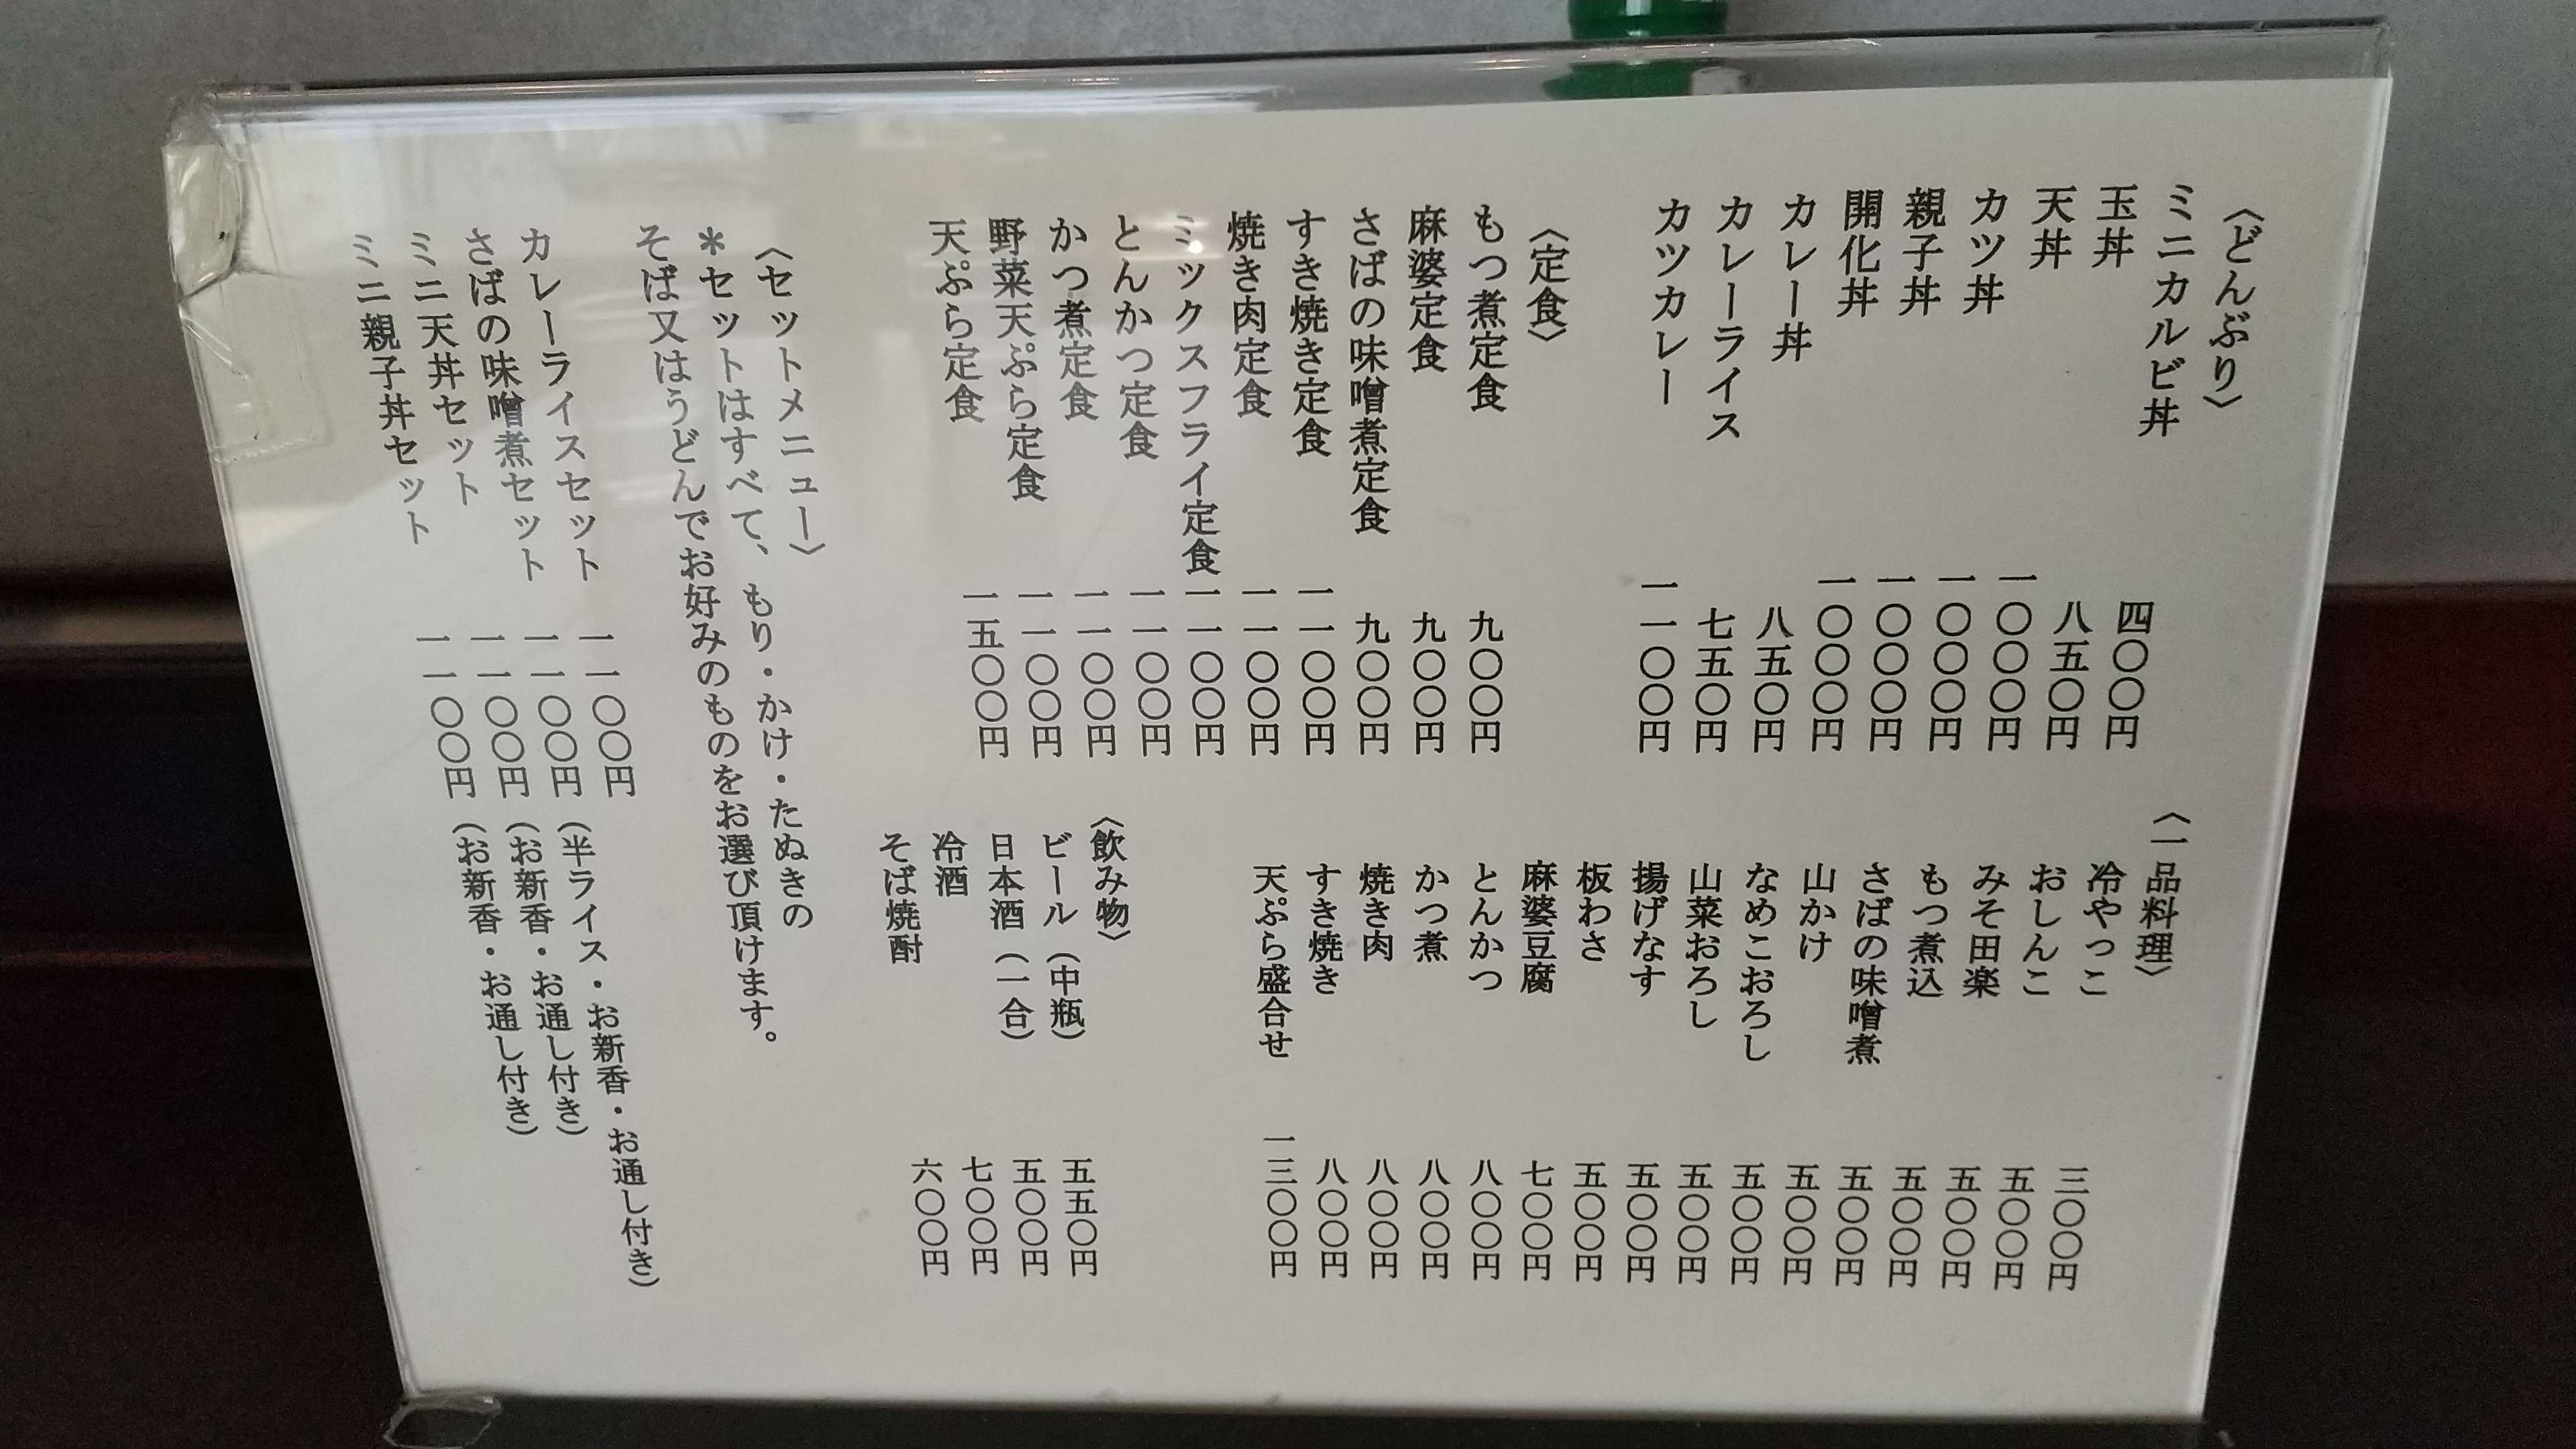 〈どんぶり〉
ミニカルビ丼 四〇〇円
玉丼 八五〇円
天丼 一〇〇〇円
カツ丼 一〇〇〇円
親子丼 一〇〇〇円
開化丼 一〇〇〇円
カレー丼 八五〇円
カレーライス 七五〇円
カツカレー 一一〇〇円
〈定食〉
もつ煮定食 九〇〇円
麻婆定食 九〇〇円
さばの味噌煮定食 九〇〇円
すき焼き定食 一一〇〇円
焼き肉定食 一一〇〇円
ミックスフライ定食 一一〇〇円
とんかつ定食 一一〇〇円
かつ煮定食 一一〇〇円
野菜天ぷら定食 一一〇〇円
天ぷら定食 一五〇〇円
〈一品料理〉
冷やっこ 三〇〇円
おしんこ 五〇〇円
みそ田楽 五〇〇円
もつ煮込 五〇〇円
さばの味噌煮 五〇〇円
山かけ 五〇〇円
なめこおろし 五〇〇円
山菜おろし 五〇〇円
揚げなす 五〇〇円
板わさ 五〇〇円
麻婆豆腐 七〇〇円
とんかつ 八〇〇円
かつ煮 八〇〇円
焼き肉 八〇〇円
すき焼き 八〇〇円
天ぷら盛合せ 一三〇〇円
〈飲み物〉
ビール（中瓶） 五五〇円
日本酒（一合） 五〇〇円
冷酒 七〇〇円
そば焼酎 六〇〇円
〈セットメニュー〉
＊セットはすべて、もり・かけ・たぬきの
そば又はうどんでお好みのものをお選び頂けます。
カレーライスセット 一一〇〇円（半ライス・お新香・お通し付き）
さばの味噌煮セット 一一〇〇円（お新香・お通し付き）
ミニ天丼セット 一一〇〇円（お新香・お通し付き）
ミニ親子丼セット 一一〇〇円